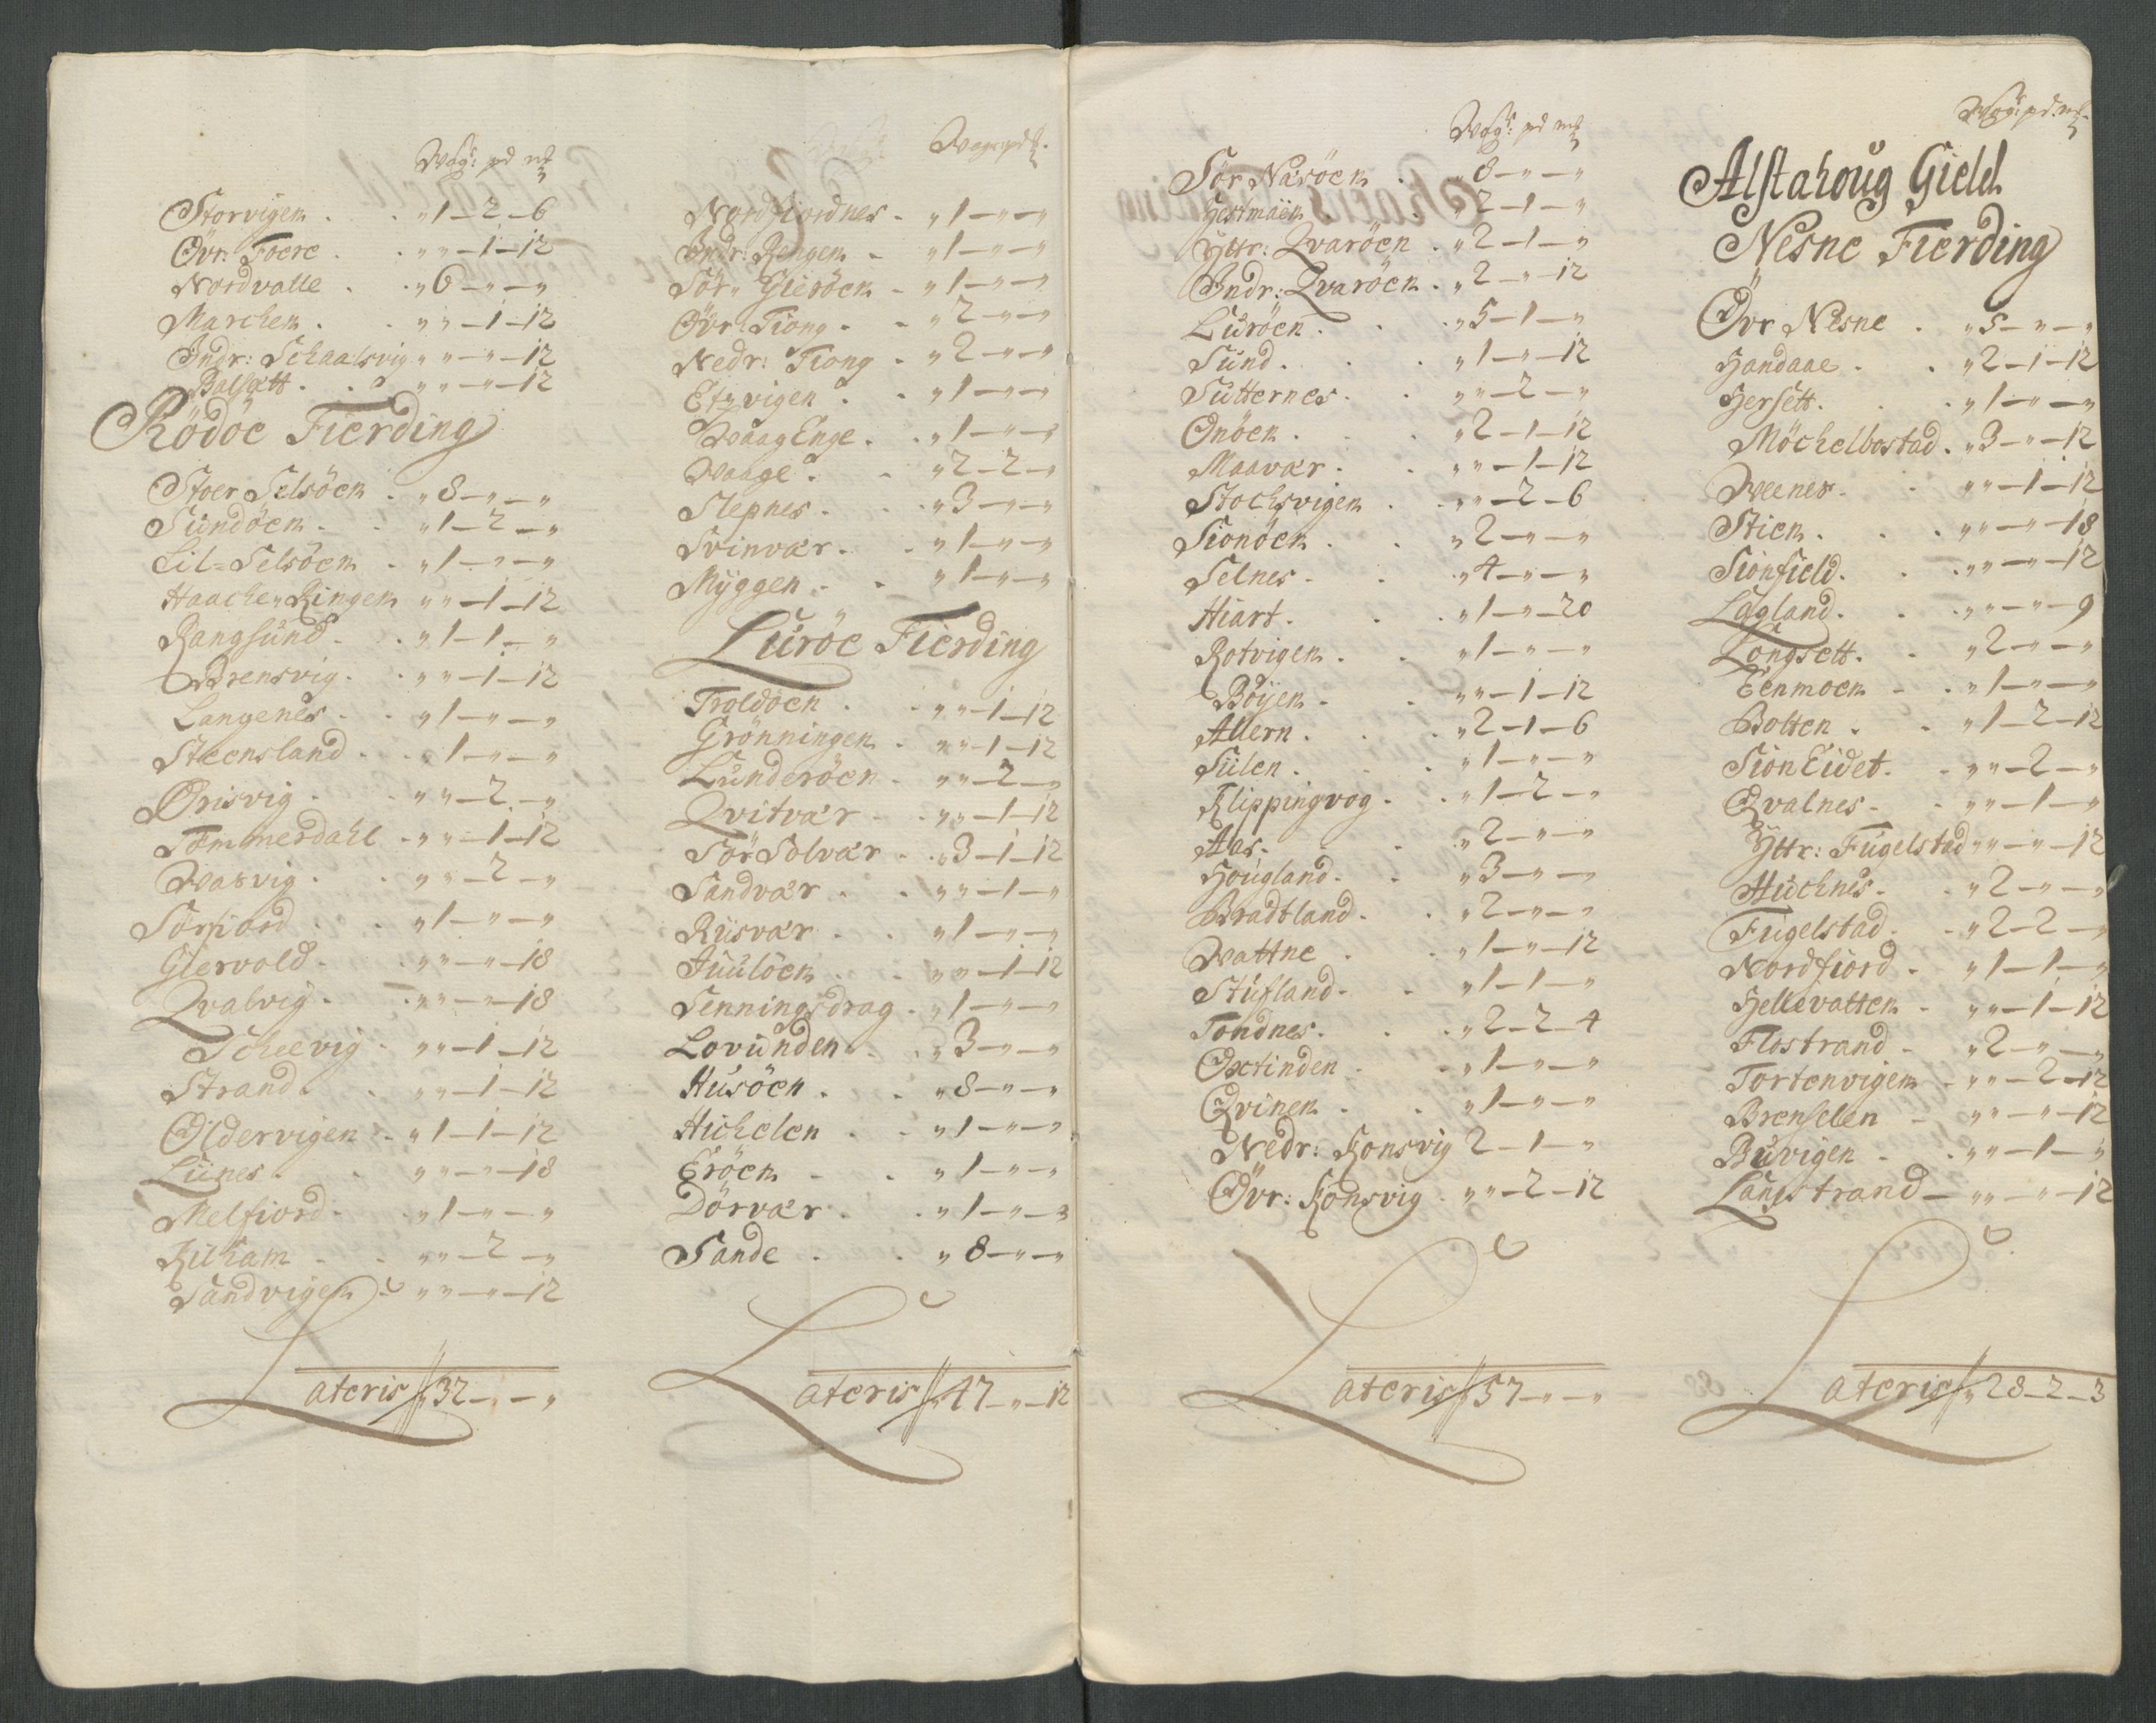 Wog: pd mk
Storvigen . . „ 1 – 2 – 6
Övr: Foere . . „ „ – 1 – 12
Nordvalle . . „ 6 – „ – „
Marchen . . „ „ – 1 – 12
Indr: Schaalsvig „ „ – „ – 12
Balsætt . . „ „ – „ – 12
Rödöe Fierding
Stoer Selsöen . „ 8 – „ – „
Sundöen . . „ 1 – 2 – „
Lil=Selsöen . „ 1 – „ – „
Haache„Ringen „ „ – 1 – 12
Rangsund . . „ 1 – 1 – „
Brensvig . . „ „ – 1 – 12
Langenes . . „ 1 – „ – „
Steensland . . „ 1 – „ – „
Örisvig . . „ „ – 2 – „
Tømmerdahl . „ „ – 1 – 12
Wasvig . . „ „ – 2 – „
Sörfiord . . „ 1 – „ – „
Giervold . . „ „ – „ – 18
Qvalvig . . „ „ – „ – 18
Scheevig . „ „ – 1 – 12
Strand . . „ „ – 1 – 12
Oldervigen . „ 1 – 1 – 12
Liines . . „ „ – „ – 18
Melfiord . . „ 1 – „ – „
Kilham . . „ „ – 2 – „
Sandvigen . „ „ – „ – 12
Lateris „ 32 – „ – „
Wog: pd
Nordfiordnes . „ 1 – „ – „
Indr: Rengen . „ 1 – „ – „
Sör„ Gieröen . „ 1 – „ – „
Övr: Tiong . . „ 2 – „ – „
Nedr: Tiong . „ 2 – „ – „
Et„vigen . . „ 1 – „ – „
Waag Enge . . „ 1 – „ – „
Waage . . „ 2 – 2 – „
Slepnes . . „ 3 – „ – „
Svinvær . . „ 1 – „ – „
Myggen . . „ 1 – „ – „
Luröe Fierding
Troldöen . . „ „ – 1 – 12
Grönningen . „ „ – 1 – 12
Lunderöen . „ „ – 2 – „
Qvitvær . . „ „ – 1 – 12
Sör Solvær . . „ 3 – 1 – 12
Sandvær . . „ „ – 1 – „
Rüsvær . . „ 1 – „ – „
Huulöen . . „ „ – 1 – 12
Senningsdrag . „ 1 – „ – „
Lovunden . . „ 3 – „ – „
Husöen . . „ 8 – „ – „
Hichelen . . „ 1 – „ – „
Eröen . . „ 1 – „ – „
Dörvær . . „ 1 – „ – „
Sande . . „ 8 – „ – „
Lateris „ 47 – „ – 12
Wog: pd mk
Sör Næsöen . „ 8 – „ – „
Hestmåen . . „ 2 – 1 – „
Yttr: Qvaröen . „ 2 – 1 – „
Indr: Qvaröen . „ 2 – „ – 12
Luröen . . „ 5 – 1 – „
Sund . . „ 1 – „ – 12
Sutternes . . „ „ – 2 – „
Onöen . . „ 2 – 1 – 12
Maavær . . „ „ – 1 – 12
Stochsvigen . . „ „ – 2 – 6
Sionöen . . „ 2 – „ – „
Selnes . . „ 4 – „ – „
Hiart . . „ 1 – „ – 20
Rotvigen . . „ 1 – „ – „
Böyen . . „ „ – 1 – 12
Allern . . „ 2 – 1 – 6
Siilen . . „ 1 – „ – „
Klippingvog . . „ 1 – 2 – „
Aas . . „ 2 – „ – „
Hougland . . „ 3 – „ – „
Bradtland . . „ 2 – „ – „
Wattne . . „ 1 – „ – 12
Stufland . . „ 1 – 1 – „
Tondnes . . „ 2 – 2 – 4
Oxtinden . . „ 1 – „ – „
Qvinen . . „ 1 – „ – „
Nedr: Konsvig 2 – 1 – „
Övr: Konsvig . „ „ – 2 – 12
Lateris „ 57 – „ – „
Wog: pd mk
Alstahoug Gield
Nesne Fierding
Övr Nesne . „ 5 – „ – „
Handaae . . „ 2 – 1 – 12
Hersett . . „ 1 – „ – „
Möchelbostad . „ 3 – „ – 12
Weenes . . „ „ – 1 – 12
Stien . . „ „ – „ – 18
Sionfield . . „ „ – „ – 12
Lægland . . „ „ – „ – 9
Longsett . . „ 2 – „ – „
Eenmoen . . „ 1 – „ – „
Bolten . . „ 1 – 2 – 12
Sion Eidet . . „ „ – 2 – „
Qvalnes . . „ „ – 1 – „
Yttr: Fugelstad „ „ – „ – 12
Huchnes . . „ 2 – „ – „
Fugelstad . . „ 2 – 2 – „
Nordfiord . „ 1 – 1 – „
Hellevatten . „ „ – 1 – 12
Flostrand . „ 2 – „ – „
Tortenvigen . „ „ – 2 – 12
Brenselen . „ „ – „ – 12
Buvigen . . „ „ – 1 – „
Langstrand – „ „ – „ – 12
Lateris „ 28 – 2 – 3